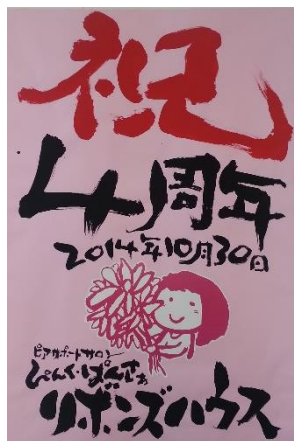 祝
4周年
2014年10月30日
ピアサポートサロン
ぴんく・ぱんさぁ
リボンズハウス